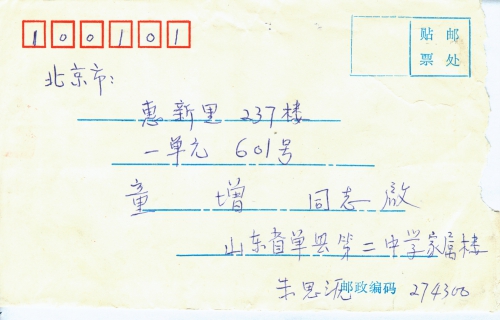 100101
贴 邮
票 处
北京市:
惠新里 237楼
一单元 601号
童 增 同志 启
山东省单县第二中学家属楼
朱思
邮政编码 274300